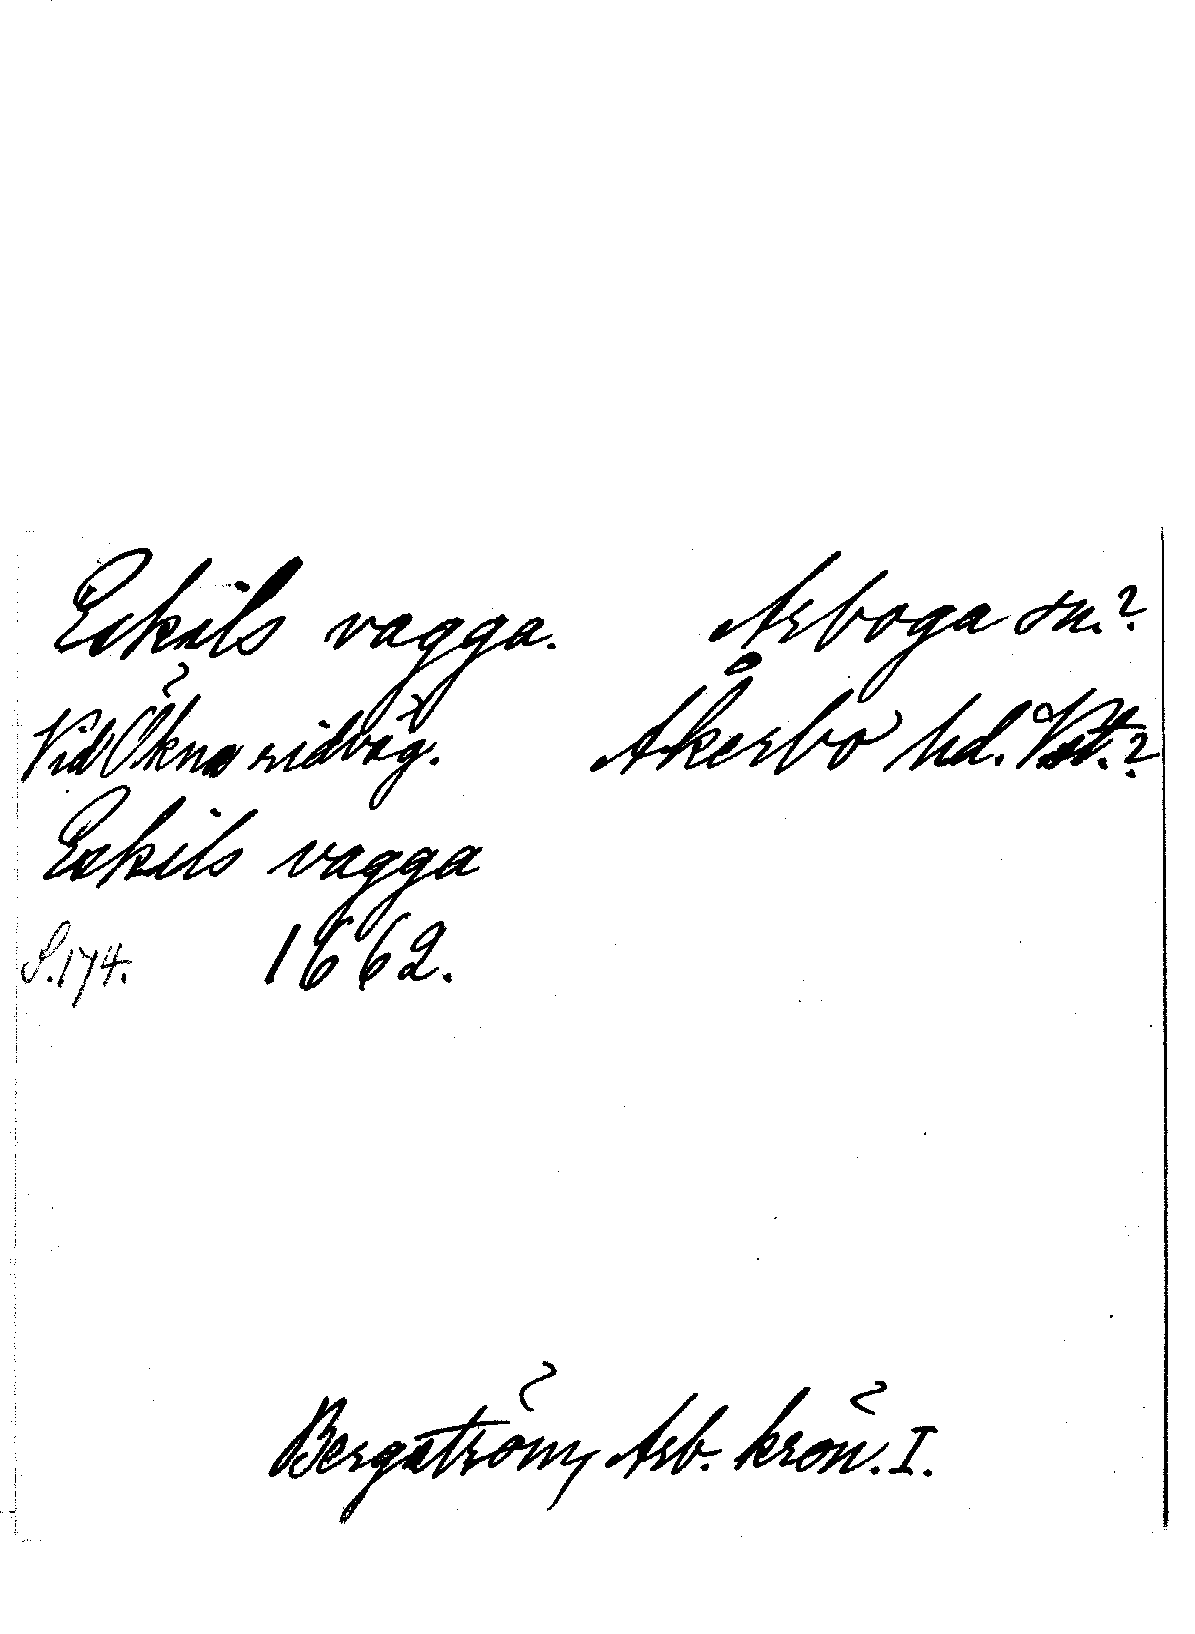 Eskils vagga. Arboga sn.?
Vid Ökna ridväg. Åkerbo hd. Vstm.?
Eskils vagga
S. 174. 1662.
Bergström, Arb. krön. I.